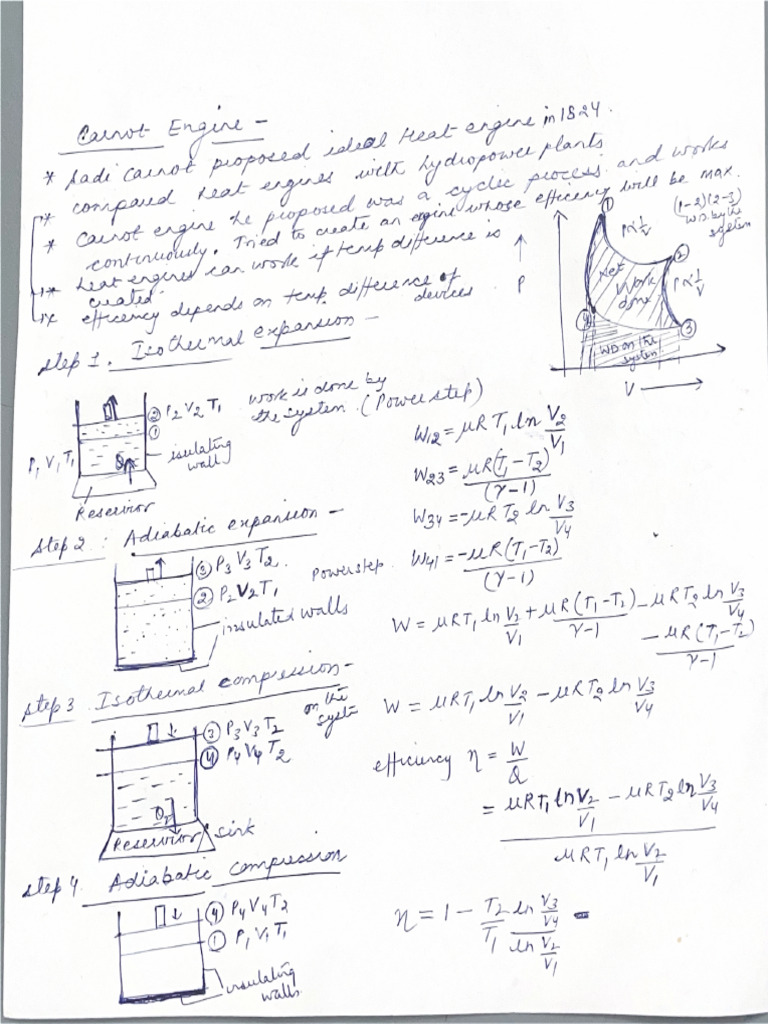 Carnot Engine -
* Sadi Carnot proposed ideal Heat engine in 1824.
* compared heat engines with hydropower plants
* Carnot engine he proposed was a cyclic process and works
continuously. Tried to create an engine whose efficiency will be max.
* heat engines can work if temp difference is
created.
* efficiency depends on temp. difference of
devices.
(1-2)(2-3)
WD by the
system
P
①
P∝1/V
②
Net
Work
done
P∝1/V
④
③
WD on the
system
V
Step 1. Isothermal expansion -
② P2 V2 T1
①
P1 V1 T1
insulating
walls
Reservior
work is done by
the system (Power step)
W12 = μRT1 ln V2/V1
W23 = μR(T1-T2)/(γ-1)
W34 = -μRT2 ln V3/V4
W41 = -μR(T1-T2)/(γ-1)
Step 2 : Adiabatic expansion -
③ P3 V3 T2
② P2 V2 T1
Powerstep
insulated walls
W = μRT1 ln V2/V1 + μR(T1-T2)/γ-1 - μRT2 ln V3/V4
- μR(T1-T2)/γ-1
Step 3 Isothermal compression -
on the
syste
③ P3 V3 T2
④ P4 V4 T2
Reservior
sink
W = μRT1 ln V2/V1 - μRT2 ln V3/V4
efficiency η = W/Q
= μRT1 ln V2/V1 - μRT2 ln V3/V4
μRT1 ln V2/V1
Step 4. Adiabatic compression
④ P4 V4 T2
① P1 V1 T1
insulating
walls
η = 1 - T2/T1 ln V3/V4 / ln V2/V1 -